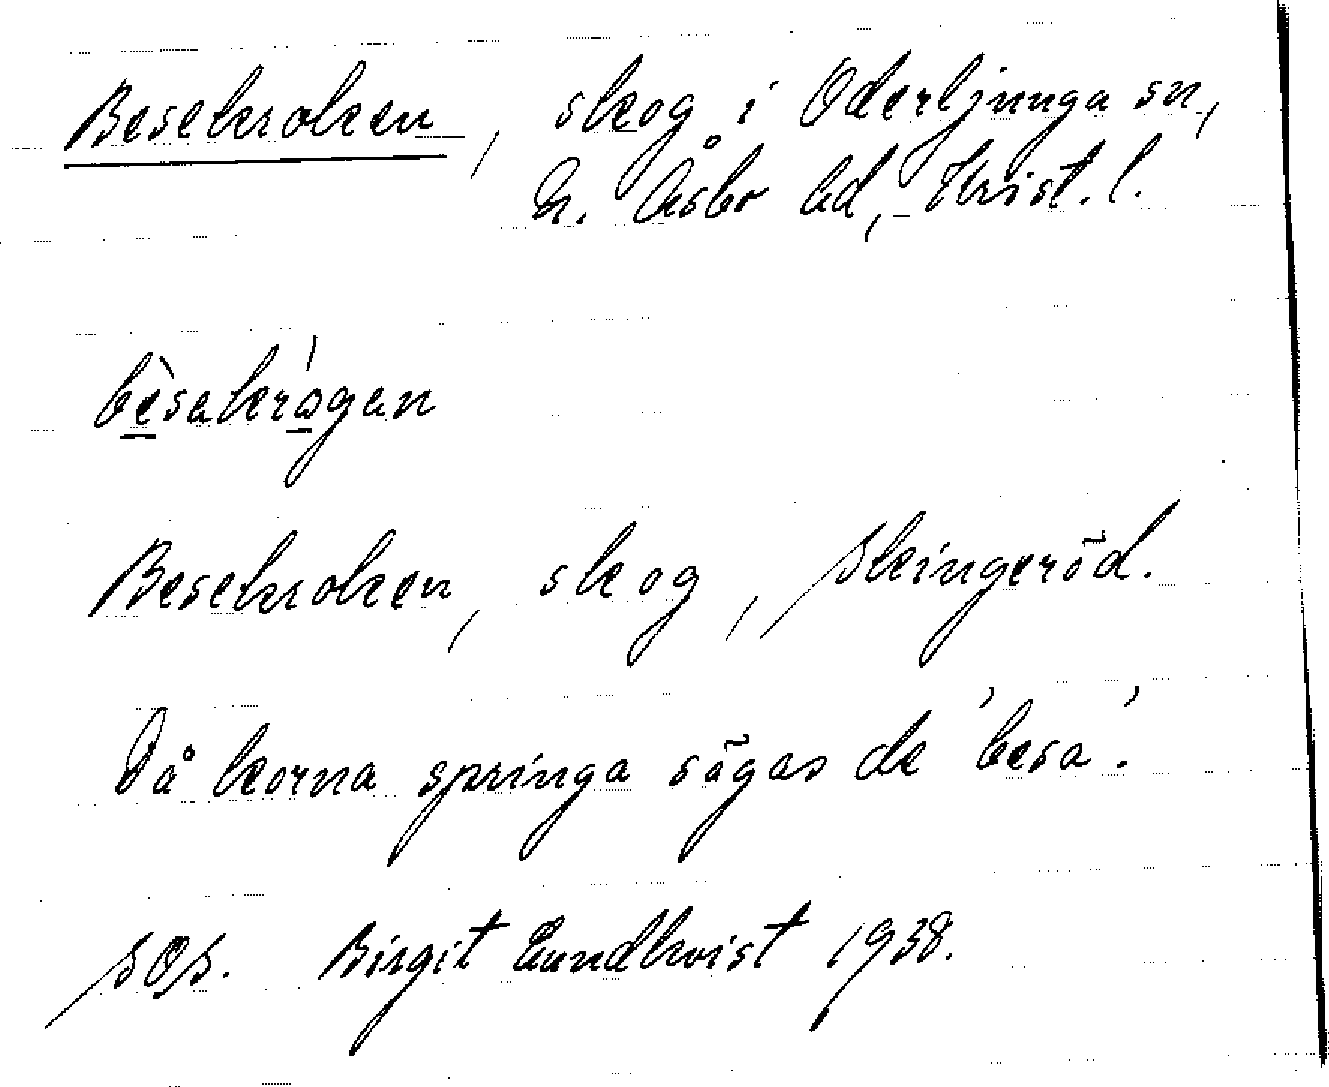 Besekroken, skog i Oderljunga sn,
N. Åsbo hd, Krist. l.
bèsakrógan
Besekroken, skog, Skingeröd.
Då korna springa sägas de 'besa'.
SOS. Birgit Lundkvist 1938.